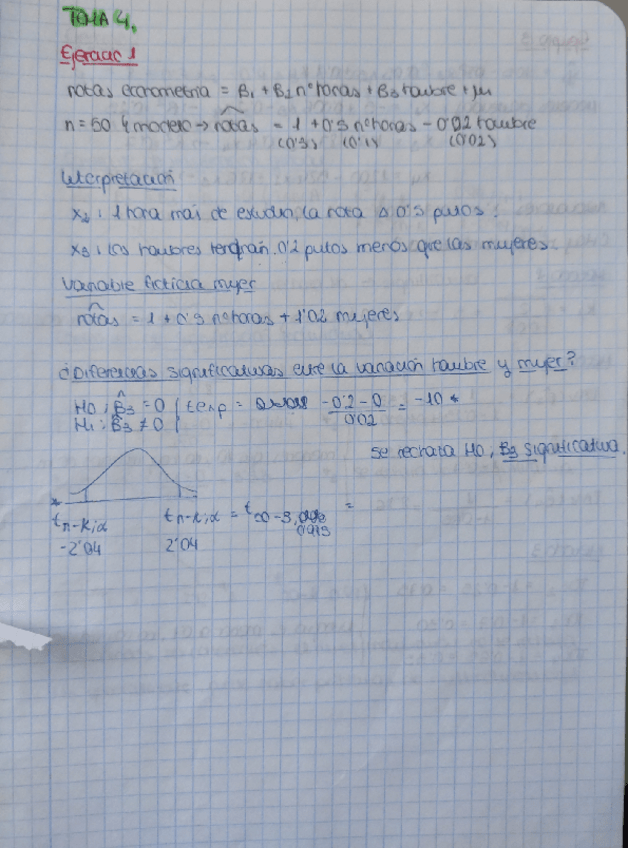 TEMA 4.
Ejercicio 1
notas econometria = B₁ + B₂ nº horas + B₃ hombre + μ
n = 50 y modelo → notas = 1 + 0'3 nº horas - 0'02 hombre
(0'3) (0'1) (0'02)
Interpretación
x₂: 1 hora más de estudio, la nota Δ 0'3 putos.
x₃: los hombres tendrán 0'2 putos menos que las mujeres.
Variable ficticia mujer
notas = 1 + 0'3 nº horas + 1'02 mujeres
¿Diferencias significativas entre la variación hombre y mujer?
H₀: B̂₃ = 0 | t exp = -0'2 - 0 / 0'02 = -10 *
H₁: B̂₃ ≠ 0
se rechaza H₀, B₃ significativa.
t n-k;α t n-k;α = t 50-3, 0'025 =
-2'04 2'04